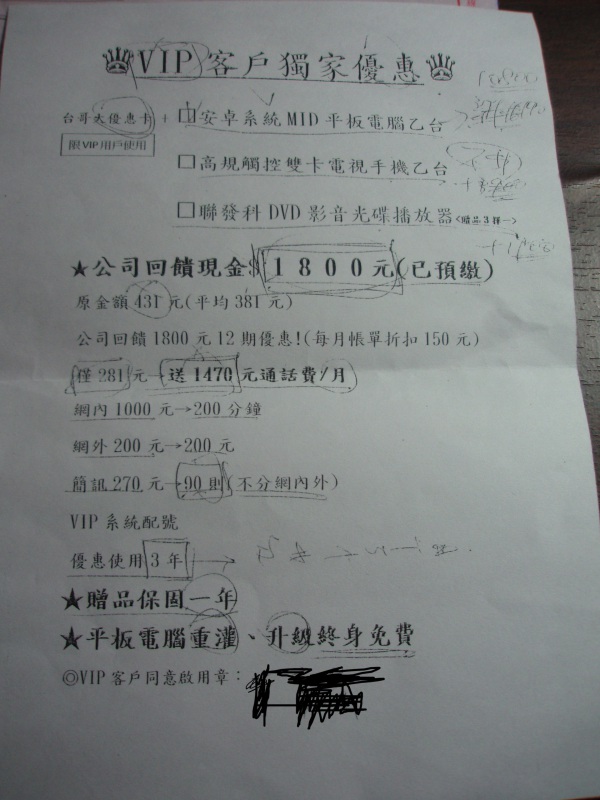 VIP客戶獨家優惠
台哥大優惠卡 + □安卓系統MID平板電腦乙台
限VIP用戶使用
□高規觸控雙卡電視手機乙台
□聯發科DVD影音光碟播放器<贈品3擇一>
★公司回饋現金$1800元(已預繳)
原金額431元(平均381元)
公司回饋1800元12期優惠!(每月帳單折扣150元)
僅281元→送1470元通話費!/月
網內1000元→200分鐘
網外200元→200元
簡訊270元→90則(不分網內外)
VIP系統配號
優惠使用3年
★贈品保固一年
★平板電腦重灌、升級終身免費
◎VIP客戶同意啟用章: